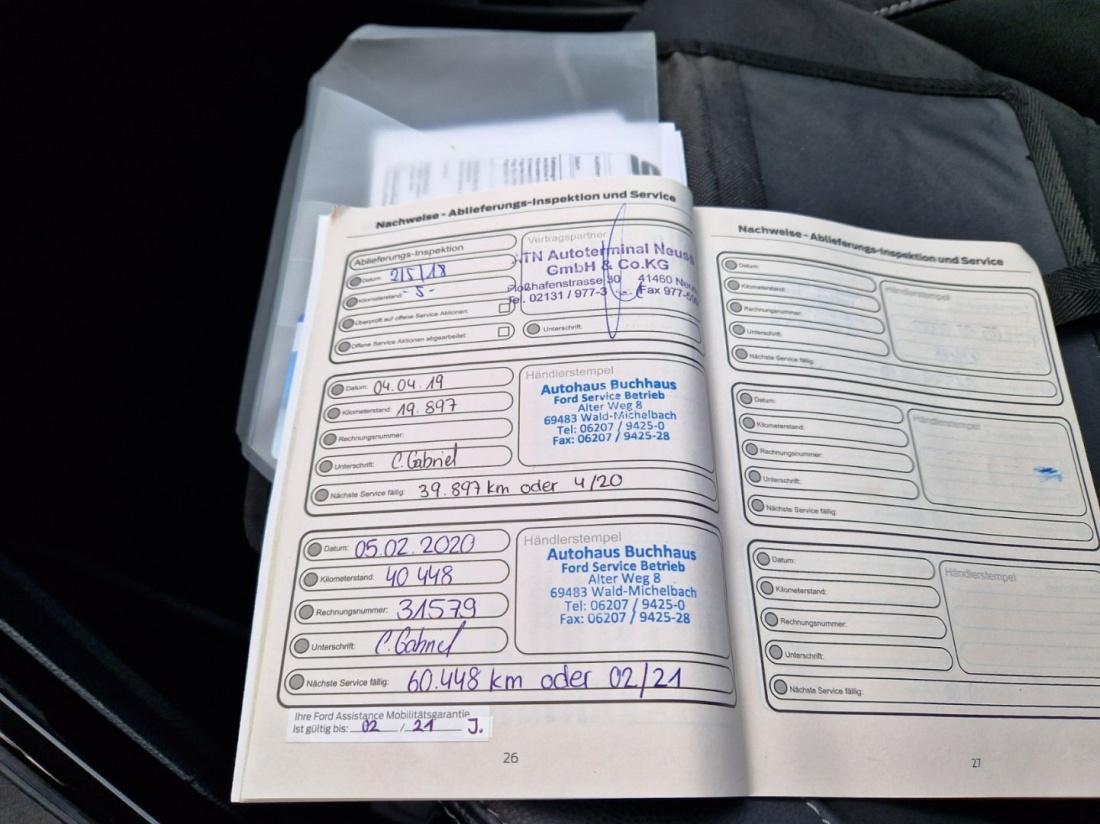 Nachweise - Ablieferungs-Inspektion und Service
Ablieferungs-Inspektion
Datum: 2/5/18
Kilometerstand: -5-
Überprüft auf offene Service Aktionen:
Offene Service Aktionen abgearbeitet:
Vertragspartner
TN Autoterminal Neuss
GmbH & Co.KG
Floßhafenstrasse 30 41460 Neuss
Tel. 02131 / 977-3 Fax 977-500
Unterschrift:
Datum: 04.04.19
Kilometerstand: 19.897
Rechnungsnummer:
Unterschrift: C. Gabriel
Nächste Service fällig: 39.897 km oder 4/20
Händlerstempel
Autohaus Buchhaus
Ford Service Betrieb
Alter Weg 8
69483 Wald-Michelbach
Tel: 06207 / 9425-0
Fax: 06207 / 9425-28
Datum: 05.02.2020
Kilometerstand: 40 448
Rechnungsnummer: 31579
Unterschrift: C. Gabriel
Nächste Service fällig: 60.448 km oder 02/21
Händlerstempel
Autohaus Buchhaus
Ford Service Betrieb
Alter Weg 8
69483 Wald-Michelbach
Tel: 06207 / 9425-0
Fax: 06207 / 9425-28
Ihre Ford Assistance Mobilitätsgarantie
ist gültig bis: 02 / 21 J.
26
Nachweise - Ablieferungs-Inspektion und Service
Datum:
Kilometerstand:
Rechnungsnummer:
Unterschrift:
Nächste Service fällig:
Händlerstempel
Datum:
Kilometerstand:
Rechnungsnummer:
Unterschrift:
Nächste Service fällig:
Händlerstempel
Datum:
Kilometerstand:
Rechnungsnummer:
Unterschrift:
Nächste Service fällig:
Händlerstempel
27